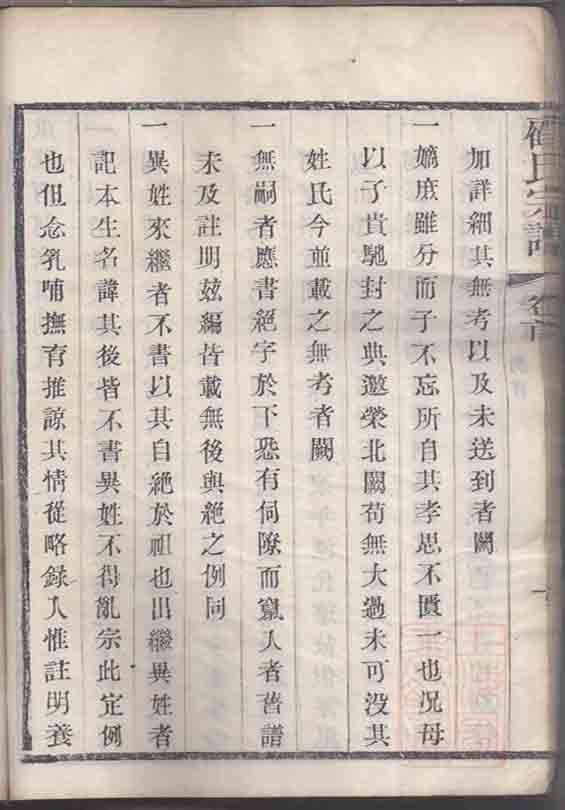 崔氏宗譜 卷首
加詳細其無考以及未送到者闕
一嫡庶雖分而子不忘所自其孝思不匱一也况母
以子貴馳封之典邀榮北闕苟無大過未可没其
姓氏今並載之無考者闕
一無嗣者應書絕字於下恐有伺隙而竄人者舊譜
未及註明兹編皆載無後與絕之例同
一異姓來繼者不書以其自絕於祖也出繼異姓者
記本生名諱其後皆不書異姓不得亂宗此定例
也但念乳哺撫育推諒其情從略録入惟註明養